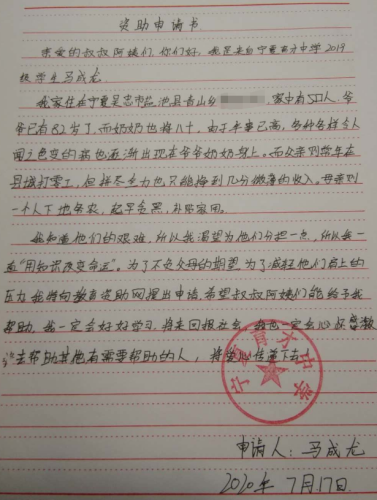 资助申请书
亲爱的叔叔阿姨们，你们好，我是来自宁夏育才中学2019
级学生马成龙
我家住在宁夏吴忠市盐池县青山乡 家中有5口人，爷
爷已有82岁了，而奶奶也将八十，由于年事已高，各种各样令人
闻之色变的病也逐渐出现在爷爷奶奶身上。而父亲则常年在
县城打零工，但拼尽全力也只能挣到几分微薄的收入。母亲则
一个人下地务农，起早贪黑，补贴家用。
我知道他们的艰难，所以我渴望为他们分担一点，所以我一
直“用知识改变命运”。为了不负父母的期望，为了减轻他们肩上的
压力，我特向教育资助网提出申请，希望叔叔阿姨们能给予我
帮助，我一定会好好学习，将来回报社会，我也一定会心
去帮助其他有需要帮助的人，将爱心传递下去。
宁夏育才中学
申请人：马成龙
2020年7月17日